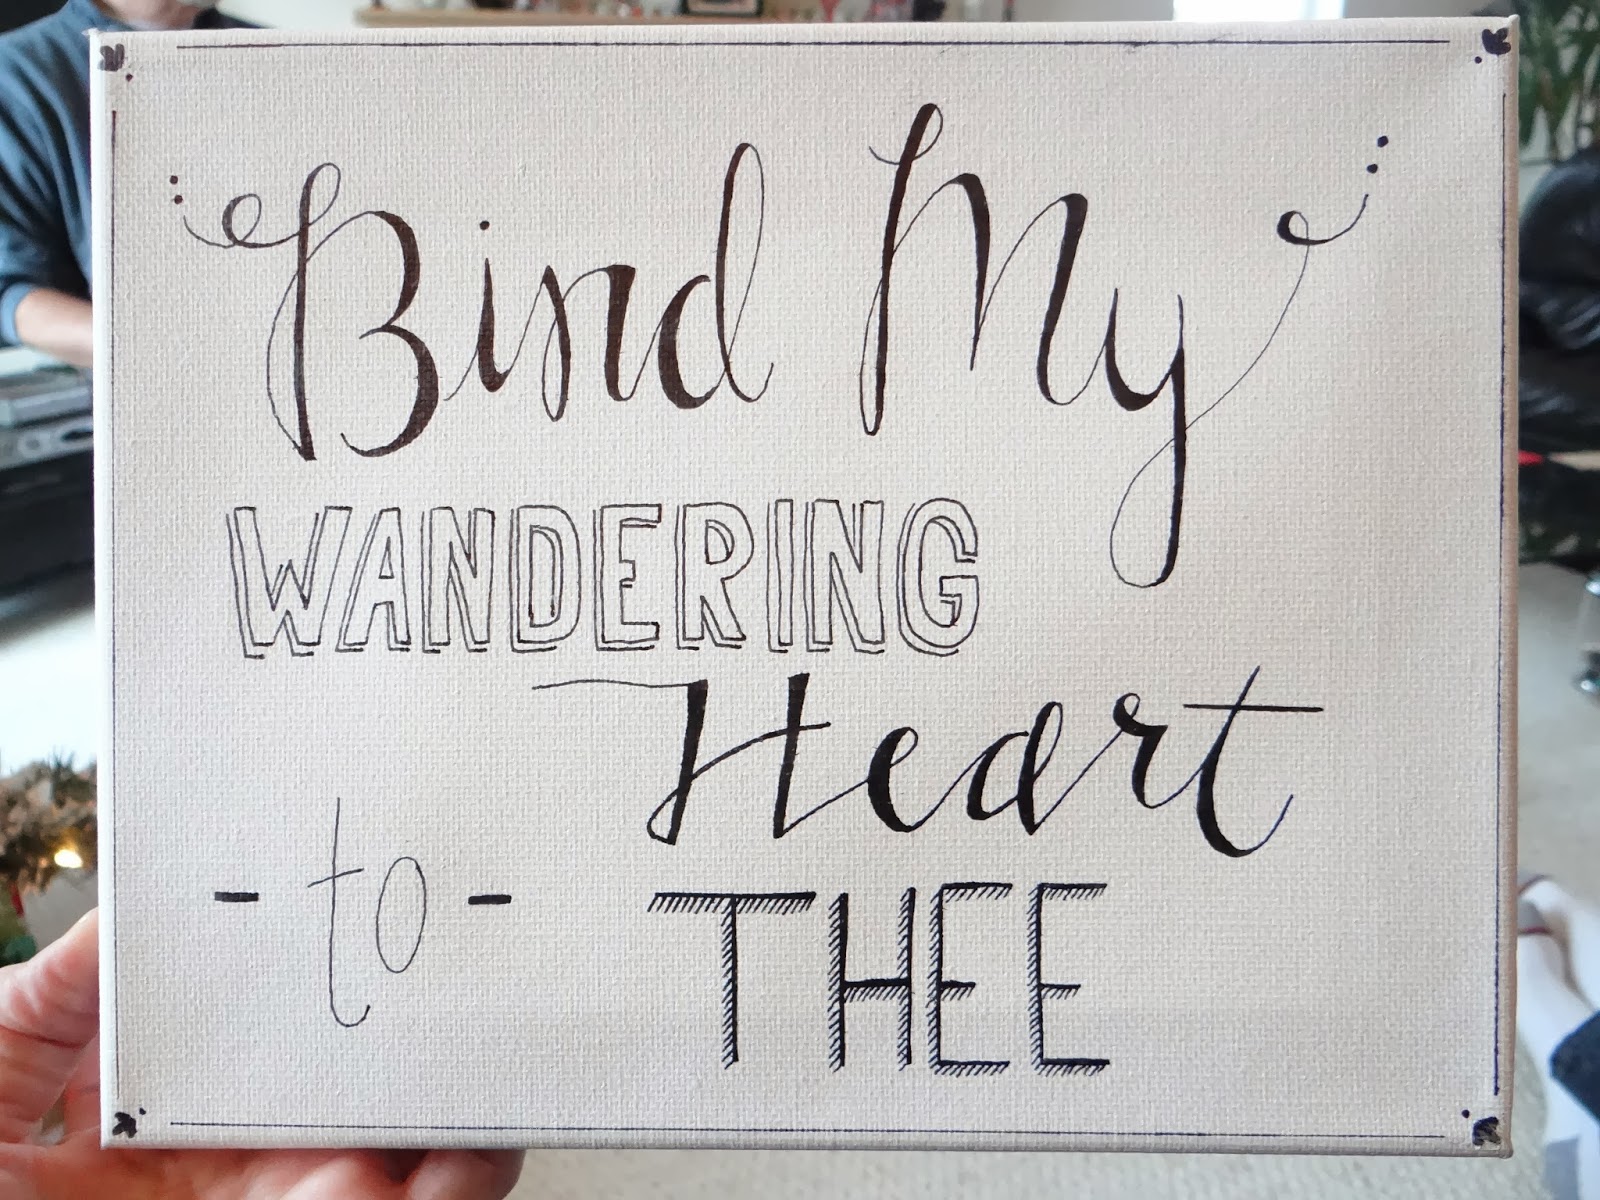 Bind My
WANDERING
Heart
- to - THEE